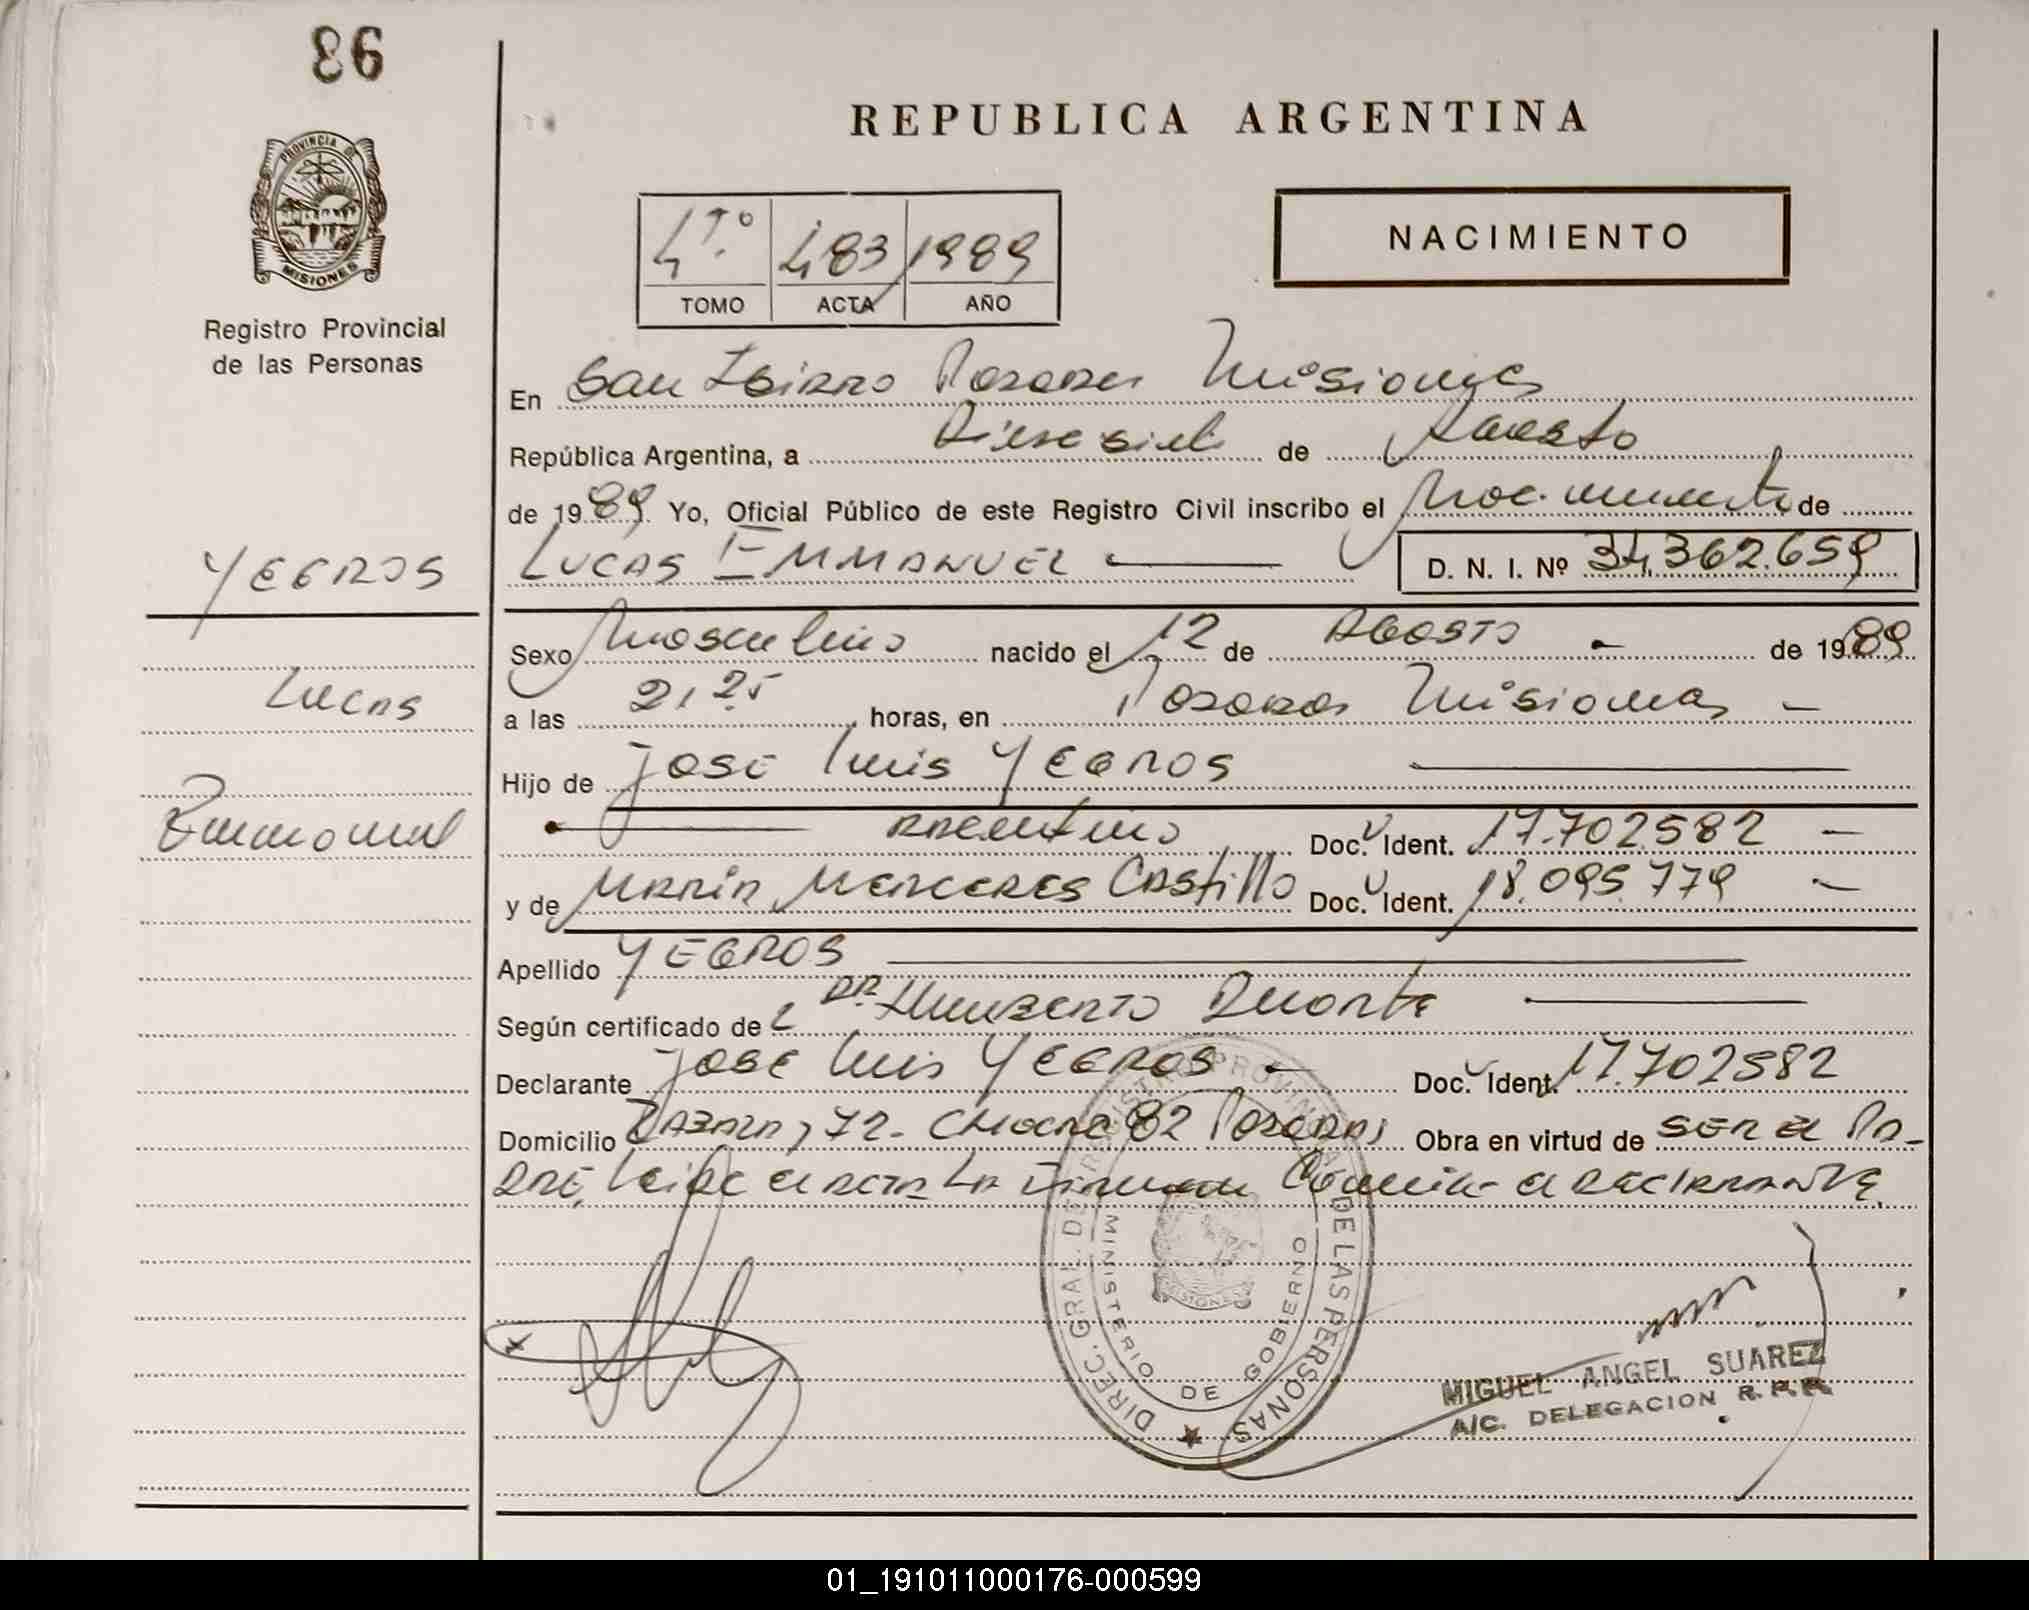 86
REPUBLICA ARGENTINA
PROVINCIA DE
MISIONES
Registro Provincial
de las Personas
4 Tº 483 1989
TOMO ACTA AÑO
NACIMIENTO
En San Isidro Posadas Misiones
República Argentina, a Diesesiete de Agosto
de 1989 Yo, Oficial Público de este Registro Civil inscribo el Nacimiento de
YEGROS
LUCAS EMMANUEL
D. N. I. Nº 34.362.659
Sexo Masculino nacido el 12 de AGOSTO de 1989
Lucas
a las 21,25 horas, en Posadas Misiones
Hijo de JOSE Luis YEGROS
Emmanuel
Argentino Doc. Ident. 17.702582
y de MARIA MERCEDES Castillo Doc. Ident. 18.095.779
Apellido YEGROS
Según certificado de DR Humberto Duarte
Declarante JOSE Luis YEGROS Doc. Ident. 17.702582
Domicilio 72- CHACRA 82 Posadas Obra en virtud de SER el PA-
DRE, Leida el ACTA LA Firman el DECLARANTE
DIREC. GRAL. DE REGISTRO PROVINCIAL DE LAS PERSONAS
MINISTERIO DE GOBIERNO
MISIONES
MIGUEL ANGEL SUAREZ
A/C. DELEGACION R.P.P.
01_191011000176-000599